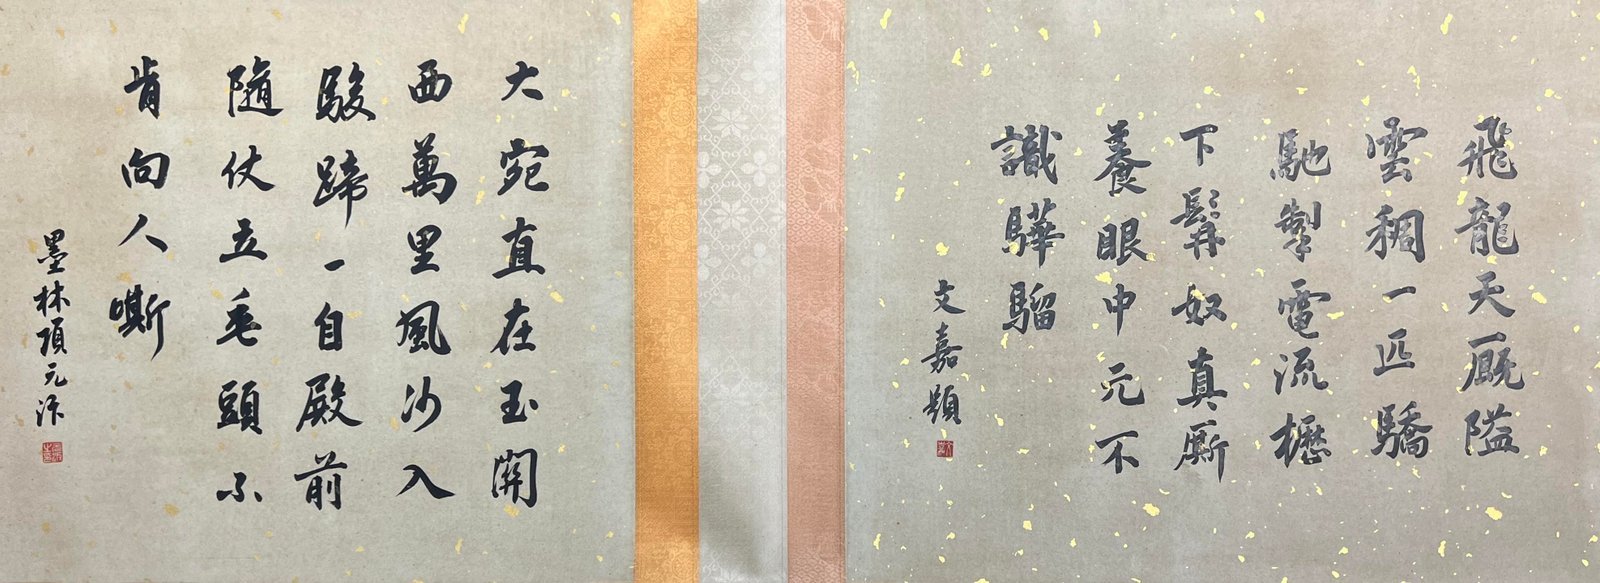 飛龍天廄隘
雲稠一匹驕
馳掣電流櫪
下髯奴真廝
養眼中元不
識驊騮
文嘉題
大宛直在玉關
西萬里風沙入
駿蹄一自殿前
隨仗立垂頭不
肯向人嘶
墨林項元汴